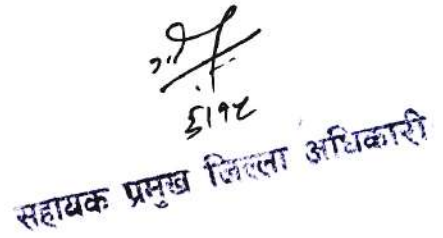 ६।१८
सहायक प्रमुख जिल्ला अधिकारी